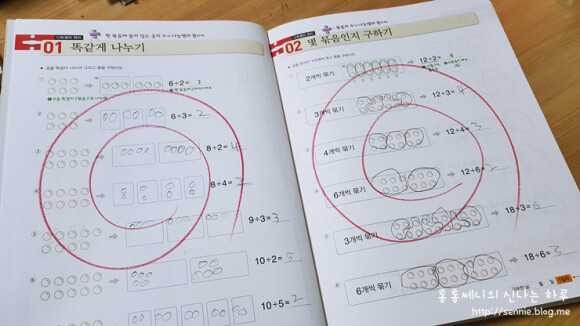 01 똑같게 나누기
6÷2= 3
6÷3= 2
8÷2= 4
8÷4= 2
9÷3= 3
10÷2= 5
10÷5= 2
02 몇 묶음인지 구하기
2개씩 묶기
12÷2= 6
3개씩 묶기
12÷3= 4
4개씩 묶기
12÷4= 3
6개씩 묶기
12÷6= 2
3개씩 묶기
18÷3= 6
6개씩 묶기
18÷6= 3
통통쎄니의 신나는 하루
http://sennie.blog.me